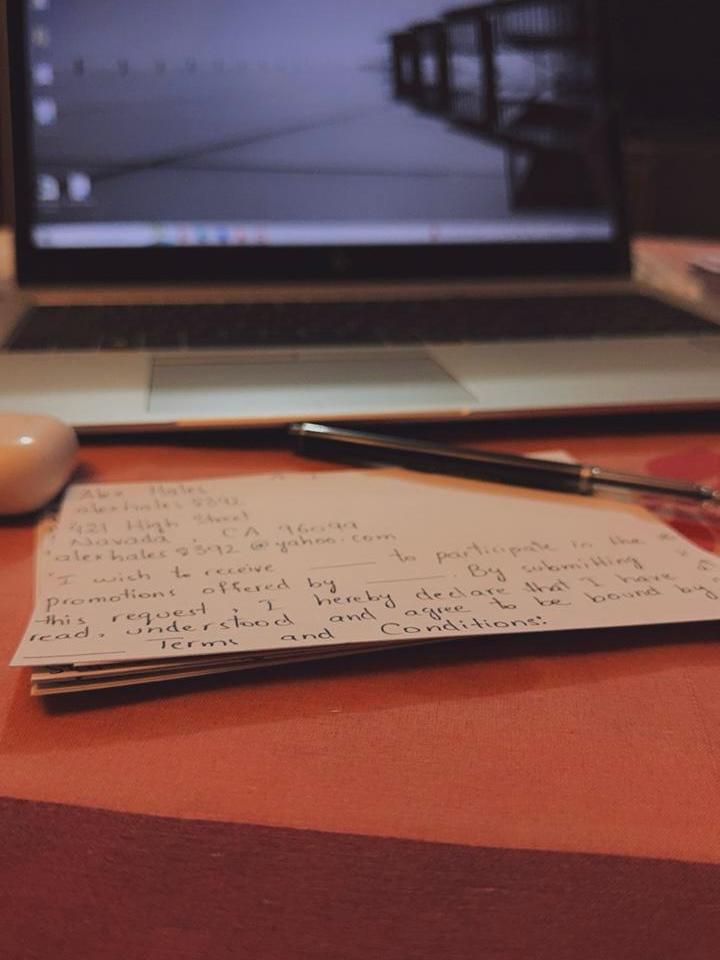 Alex Hales
alexhales8392
421 High Street
Navada, CA 96099
alexhales8392@yahoo.com
"I wish to receive ______ to participate in the
promotions offered by ______. By submitting
this request, I hereby declare that I have
read, understood and agree to be bound by
______ Terms and Conditions."